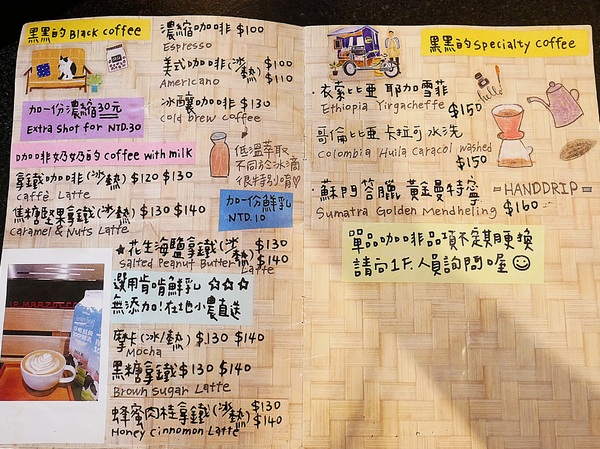 黑黑的 Black coffee
濃縮咖啡 $100
Espresso
美式咖啡(冰/熱) $100 $110
Americano
冰釀咖啡 $130
cold brew coffee
加一份濃縮30元
Extra shot for NTD.30
低溫萃取
不同於冰滴
很特別唷♡
咖咖啡奶奶的 coffee with milk
拿鐵咖啡(冰/熱) $120 $130
caffè Latte
加一份鮮乳
NTD.10
焦糖堅果拿鐵(冰/熱) $130 $140
Caramel & Nuts Latte
★花生海鹽拿鐵(冰/熱) $130 $140
Salted Peanut Butter Latte
選用肯啃鮮乳 ☆☆☆
無添加!在地小農直送
摩卡(冰/熱) $130 $140
Mocha
黑糖拿鐵 $130 $140
Brown Sugar Latte
蜂蜜肉桂拿鐵(冰/熱) $130 $140
Honey cinnomon Latte
黑黑的 specialty coffee
hello
·衣索比亞 耶加雪菲
Ethiopia Yirgacheffe $150
·哥倫比亞 卡拉可 水洗
Colombia Huila Caracol washed
$150
·蘇門答臘 黃金曼特寧
Sumatra Golden Mendheling $160
=HANDDRIP=
單品咖啡品項不定期更換
請向1F.人員詢問喔☺